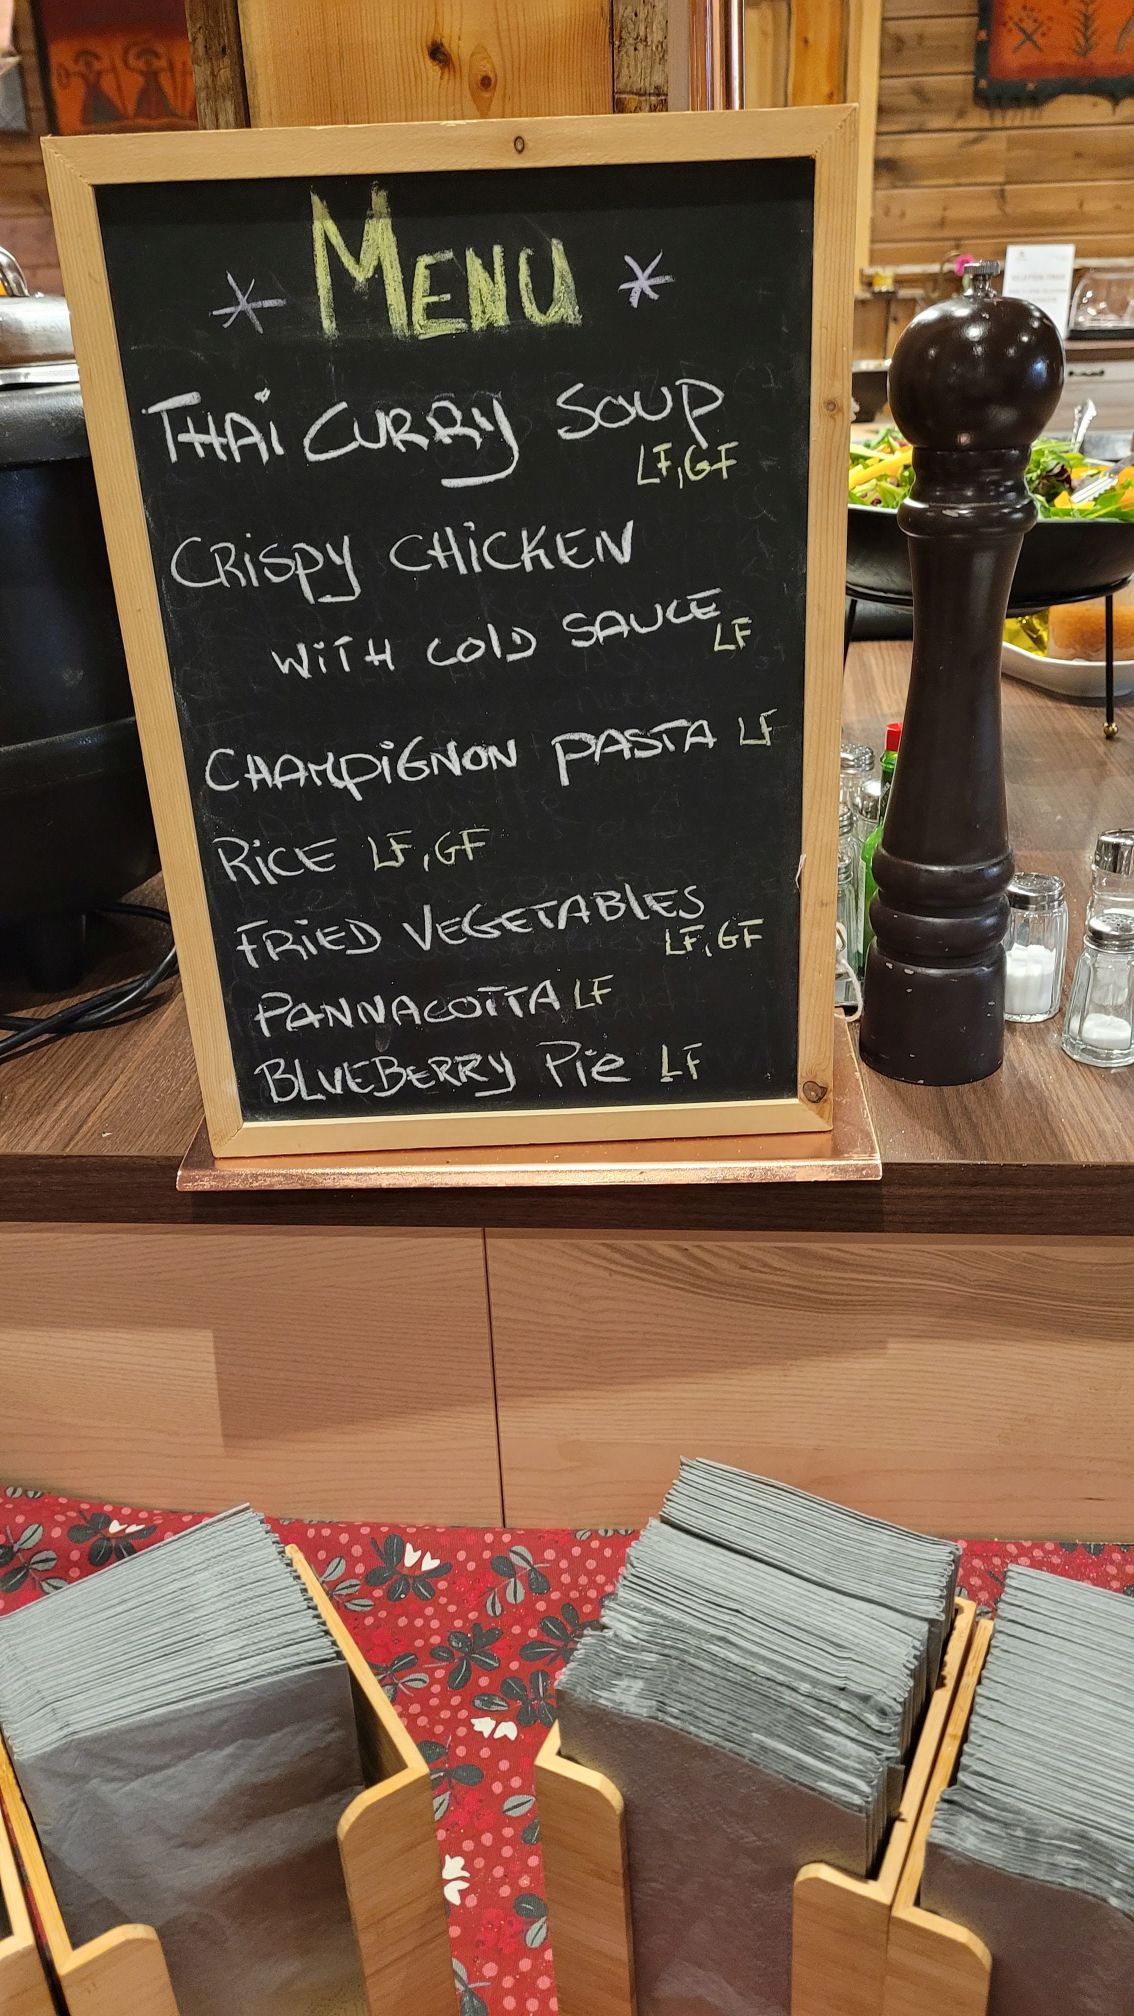 * MENU *
THAI CURRY SOUP
LF, GF
CRISPY CHICKEN
WITH COLD SAUCE
LF
CHAMPIGNON PASTA LF
RICE LF, GF
FRIED VEGETABLES
LF, GF
PANNACOTTA LF
BLUEBERRY PIE LF